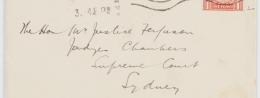 The Hon Mr Justice Ferguson
Judges Chambers
Supreme Court
Sydney